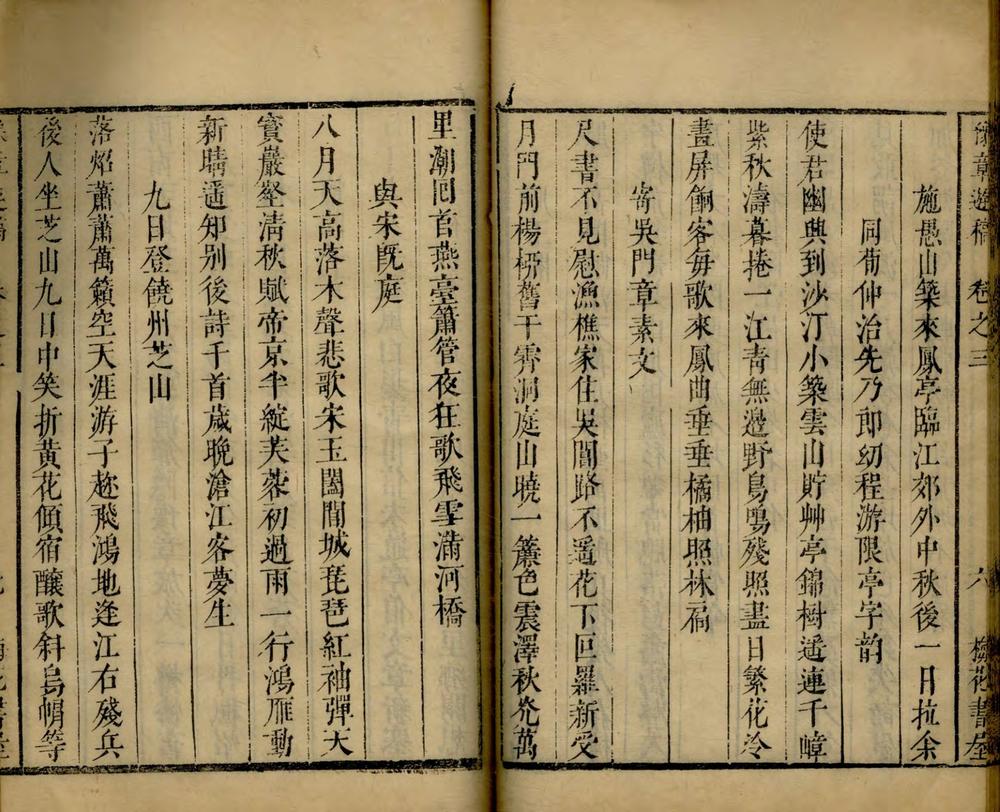 豫章遊稿 卷之三 六 梅花書屋
施愚山築來鳳亭臨江郊外中秋後一日抗余
同荀仲治先乃郎幼程游限亭字韵
使君幽興到沙汀小築雲山貯艸亭錦樹遥連千嶂
紫秋濤暮捲一江青無邊野鳥鳴殘照盡日繁花冷
畫屏餉客每歌來鳳曲垂垂橘柚照林扃
寄吳門章素文
尺書不見慰漁樵家住吳閶路不遥花下叵羅新受
月門前楊栁舊干霄洞庭山曉一簾色震澤秋光萬
里潮囘首燕臺簫管夜狂歌飛雪滿河橋
與宋旣庭
八月天高落木聲悲歌宋玉闔閭城琵琶紅袖彈天
寳巖壑清秋賦帝京半綻芙蓉初過雨一行鴻雁動
新晴遥知别後詩千首歲晚滄江客夢生
九日登饒州芝山
落熖蕭蕭萬籟空天涯游子趂飛鴻地逢江右殘兵
後人坐芝山九日中笑折黃花傾宿釀歌斜烏帽等